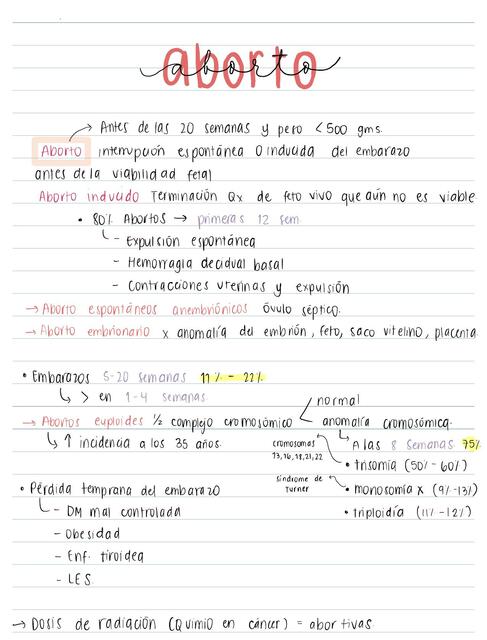 aborto
aborto
→ Antes de las 20 semanas y peso < 500 gms.
Aborto interrupción espontánea O inducida del embarazo
antes de la viabilidad fetal
Aborto inducido Terminación Qx de feto vivo que aún no es viable
• 80% Abortos → primeras 12 sem
- Expulsión espontánea
- Hemorragia decidual basal
- Contracciones uterinas y expulsión
→ Aborto espontáneos anembriónicos óvulo séptico.
→ Aborto embrionario x anomalía del embrión, feto, saco vitelino, placenta.
• Embarazos 5-20 semanas 11% - 22%
↳ > en 1-4 semanas
→ Abortos euploides ½ complejo cromosómico < normal
anomalía cromosómica.
↳ ↑ incidencia a los 35 años.
↳ A las 8 semanas 75%
cromosomas
13, 16, 18, 21, 22
• trisomía (50% - 60%)
síndrome de
Turner
• monosomía x (9% - 13%)
• triploidía (11% - 12%)
• Pérdida temprana del embarazo
- DM mal controlada
- Obesidad
- Enf. tiroidea
- LES.
→ Dosis de radiación (Quimio en cáncer) = abortivas